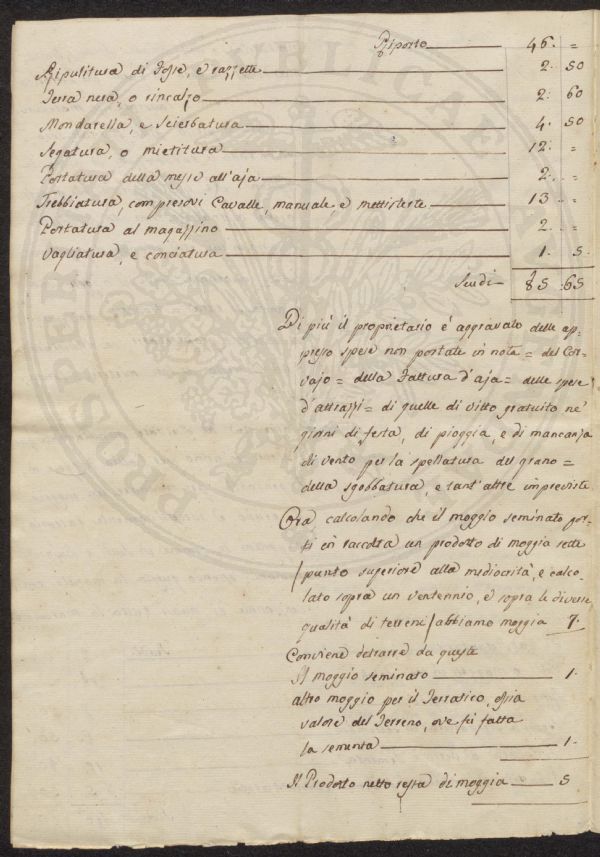 Riporto 46. =
Ripulitura di Fosse, e razzette 2. 50
Terra nera, o rincalzo 2. 60
Mondarella, e Scierbatura 4. 50
Segatura, o mietitura 12. =
Portatura della messe all'aja 2. =
Trebbiatura, compresovi Cavalle, manuale, e mettiterte 13 =
Portatura al magazzino 2. =
Vagliatura, e conciatura 1. 5.
Scudi 85 65
Di più il proprietario è aggravato delle ap-
presso spese non portate in nota = del Cor-
vajo = della Fattura d'aja = delle spese
d'attrazzi = di quelle di vitto gratuito ne'
giorni di festa, di pioggia, e di mancanza
di vento per la spellatura del grano =
della sgobbatura, e tant'altre impreviste
Ora calcolando che il moggio seminato por-
ti in raccolta un prodotto di moggia sette
/punto superiore alla mediocrità, e calco-
lato sopra un ventennio, e sopra le diverse
qualità di terreni/ abbiamo moggia 7.
Conviene detrarre da queste
Il moggio seminato 1.
altro moggio per il Terratico, ossia
valore del Terreno, ove fu fatta
la sementa 1.
Il Prodotto netto resta di moggia 5